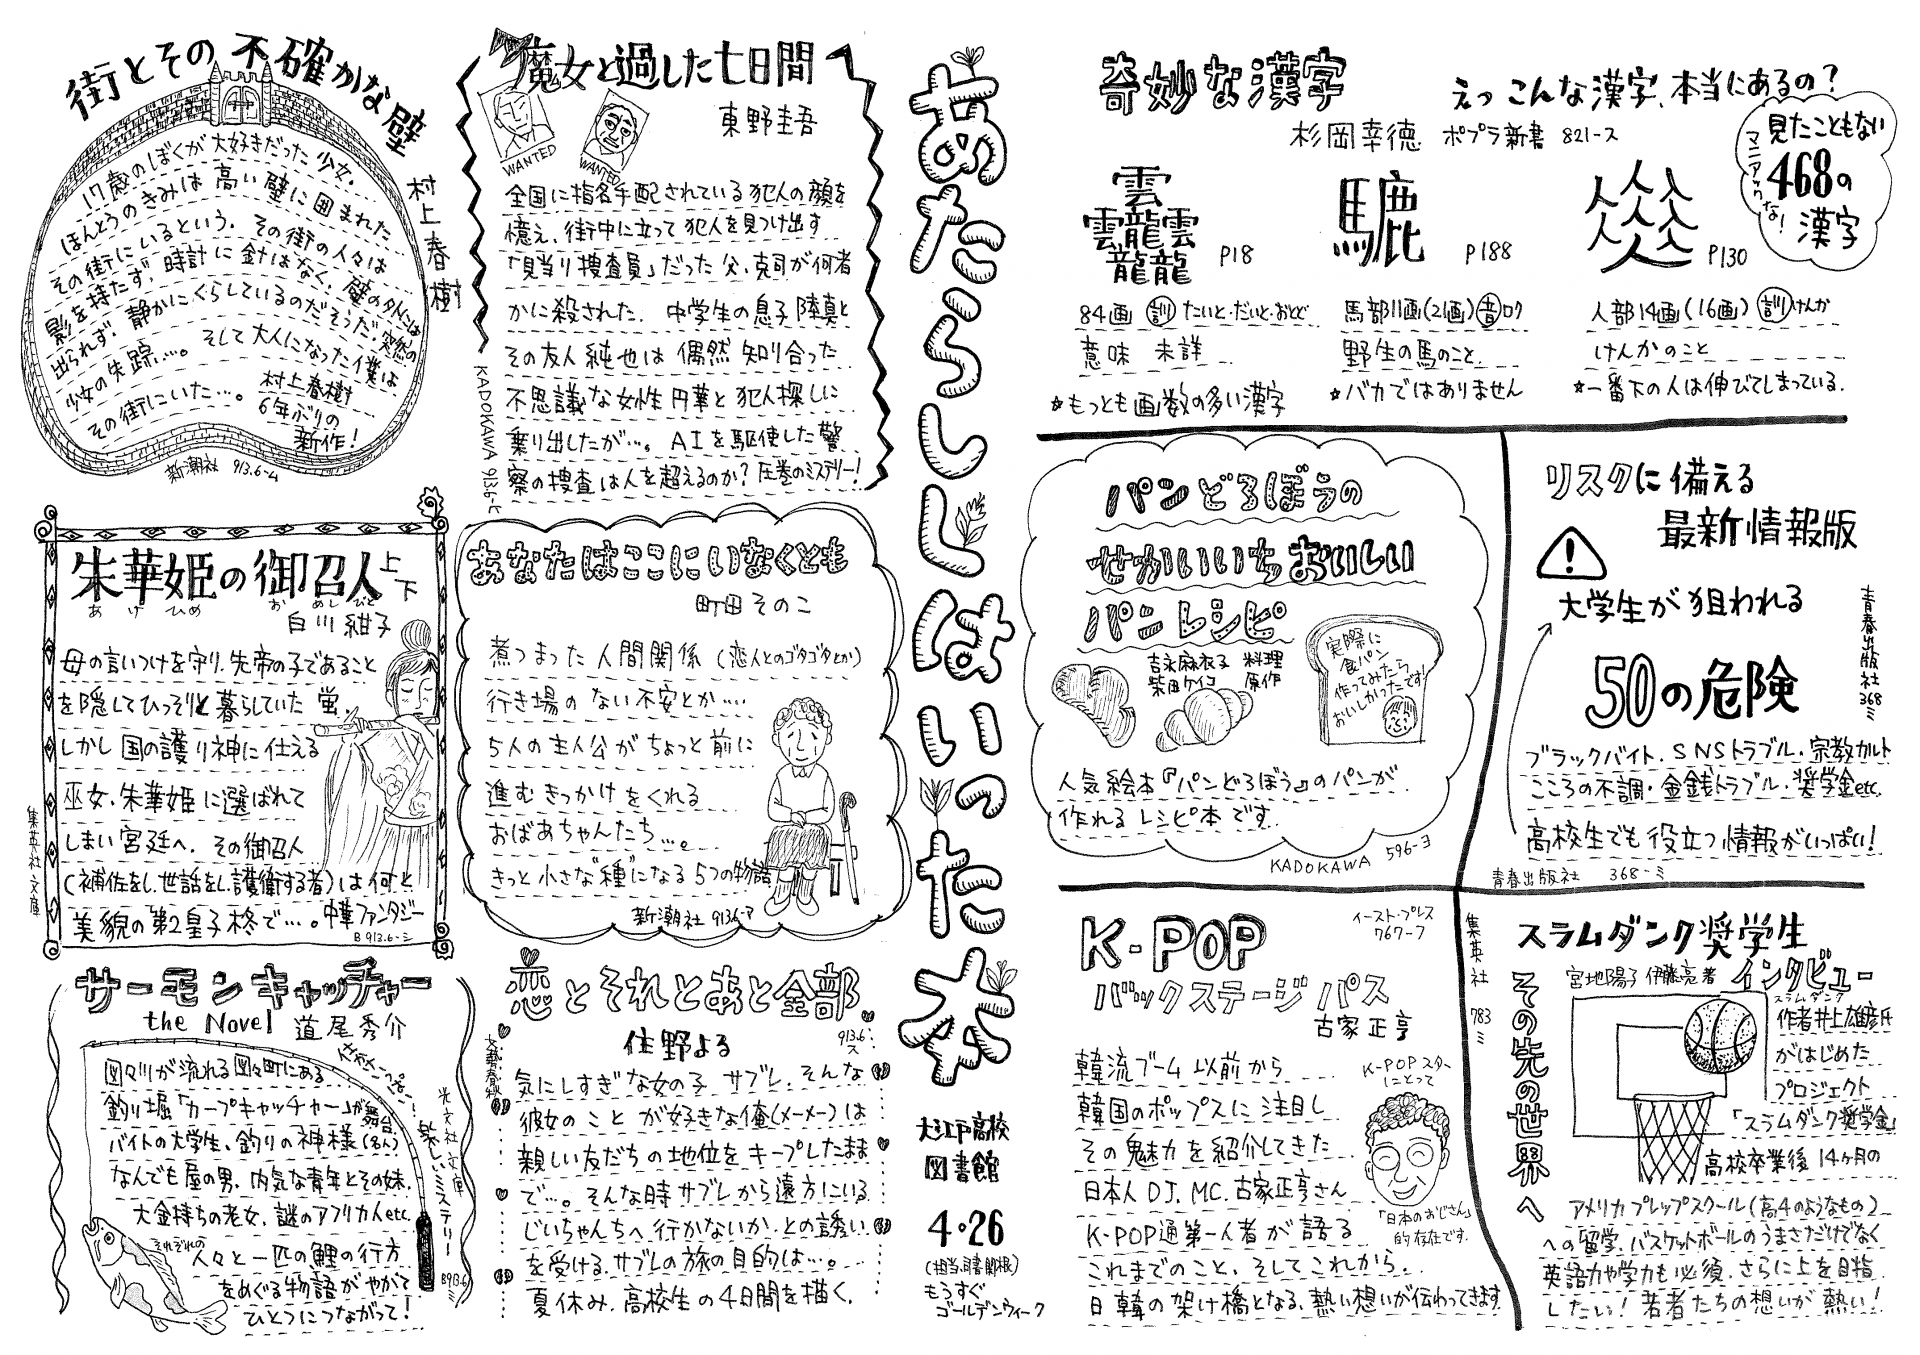 あたらしくはいった本
大江戸高校
図書館
4・26
(担当司書 関根)
もうすぐ
ゴールデンウィーク
街とその不確かな壁
村上春樹
17歳のぼくが大好きだった少女。
ほんとうのきみは高い壁に囲まれた
その街にいるという。その街の人々は
影を持たず、時計に針はなく、壁の外には
出られず、静かにくらしているのだそうだ。突然の
少女の失踪…。そして大人になった僕は
その街にいた…。
村上春樹
6年ぶりの
新作!
新潮社 913.6-ム
魔女と過した七日間
東野圭吾
WANTED
WANTED
全国に指名手配されている犯人の顔を
憶え、街中に立って犯人を見つけ出す
「見当り捜査員」だった父、克司が何者
かに殺された。中学生の息子 陸真と
その友人 純也は 偶然 知り合った
不思議な女性 円華と犯人探しに
乗り出したが…。AIを駆使した警
察の捜査は人を超えるのか?圧巻のミステリー!
KADOKAWA 913.6-ヒ
朱華姫の御召人 上下
あけひめ おめしびと
白川紺子
母の言いつけを守り、先帝の子であること
を隠してひっそりと暮らしていた 蛍。
しかし 国の護り神に仕える
巫女、朱華姫に選ばれて
しまい宮廷へ。その御召人
(補佐をし、世話をし、護衛する者)は何と
美貌の第2皇子柊で…。中華ファンタジー
B 913.6-シ
集英社文庫
あなたはここにいなくとも
町田そのこ
煮つまった人間関係(恋人とのゴタゴタとか)
行き場のない不安とか…
5人の主人公がちょっと前に
進むきっかけをくれる
おばあちゃんたち…。
きっと小さな“種”になる5つの物語
新潮社 913.6-マ
サーモン キャッチャー
the Novel 道尾秀介
図々川が流れる図々町にある
釣り堀「カープキャッチャー」が舞台
バイトの大学生、釣りの神様(名人)
なんでも屋の男、内気な青年とその妹、
大金持ちの老女、謎のアフリカ人etc.
それぞれの
人々と一匹の鯉の行方
をめぐる物語がやがて
ひとつにつながって!
楽しいミステリー
光文社文庫
B913.6
恋とそれとあと全部
住野よる
913.6-ス
文藝春秋
気にしすぎな女の子 サブレ。そんな
彼女のこと が好きな俺(メーメー)は
親しい友だちの地位をキープしたまま
で…。そんな時サブレから遠方にいる
じいちゃんちへ行かないか、との誘い
を受ける。サブレの旅の目的は…。
夏休み、高校生の4日間を描く。
奇妙な漢字
えっ こんな漢字、本当にあるの?
杉岡幸徳 ポプラ新書 821-ス
見たこともない
マニアックな!
468の
漢字
P18
84画 訓 たいと・だいと・おとど
意味 未詳
☆もっとも画数の多い漢字
P188
馬部11画(21画)音ロク
野生の馬のこと
☆バカではありません
P130
人部14画(16画)訓けんか
けんかのこと
☆一番下の人は伸びてしまっている。
パンどろぼうの
せかいいちおいしい
パンレシピ
吉永麻衣子 料理
柴田ケイコ 原作
実際に
食パン
作ってみたら
おいしかったです!
人気絵本『パンどろぼう』のパンが
作れる レシピ本です。
KADOKAWA 596-ヨ
リスクに備える
最新情報版
大学生が狙われる
50の危険
青春出版社 368-ミ
ブラックバイト・SNSトラブル・宗教カルト
こころの不調・金銭トラブル・奨学金etc.
高校生でも役立つ情報がいっぱい!
青春出版社 368-ミ
K-POP
バックステージパス
イースト・プレス
767-フ
古家正亨
韓流ブーム以前から
韓国のポップスに注目し
その魅力を紹介してきた
日本人DJ、MC、古家正亨さん
K-POP通第一人者が語る
これまでのこと、そしてこれから。
日韓の架け橋となる、熱い想いが伝わってきます。
K-POPスター
にとって
「日本のおじさん」
的存在です。
スラムダンク奨学生
インタビュー
その先の世界へ
宮地陽子 伊藤亮 著
集英社 783-ミ
スラムダンク
作者井上雄彦氏
がはじめた
プロジェクト
「スラムダンク奨学金」
高校卒業後14ヶ月の
アメリカプレップスクール(高4のようなもの)
への留学。バスケットボールのうまさだけでなく
英語力や学力も必須。さらに上を目指
したい!若者たちの想いが熱い!